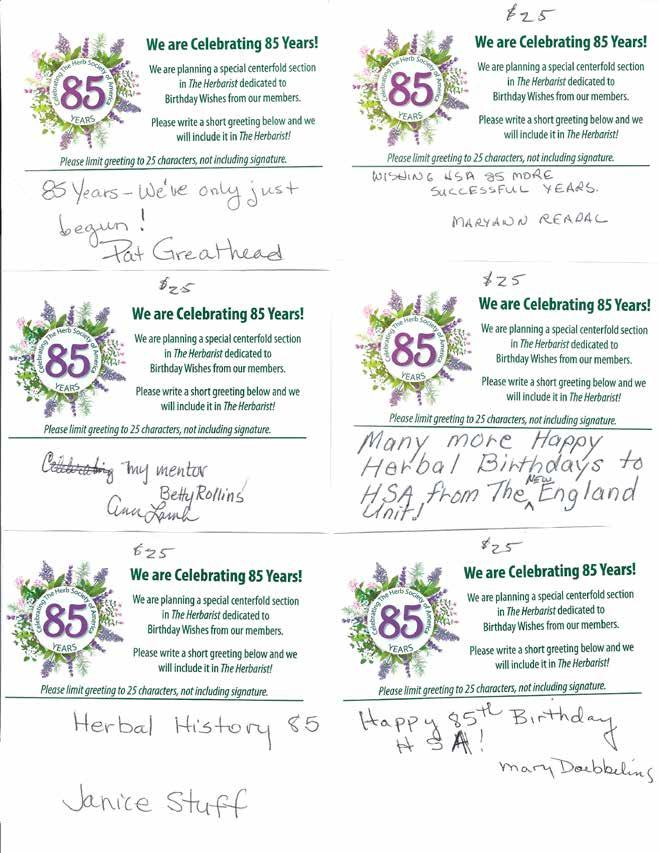 Celebrating The Herb Society of America
85
YEARS
We are Celebrating 85 Years!
We are planning a special centerfold section
in The Herbarist dedicated to
Birthday Wishes from our members.
Please write a short greeting below and we
will include it in The Herbarist!
Please limit greeting to 25 characters, not including signature.
85 Years – We've only just
begun!
Pat Greathead
$25
Celebrating The Herb Society of America
85
YEARS
We are Celebrating 85 Years!
We are planning a special centerfold section
in The Herbarist dedicated to
Birthday Wishes from our members.
Please write a short greeting below and we
will include it in The Herbarist!
Please limit greeting to 25 characters, not including signature.
WISHING HSA 85 MORE
SUCCESSFUL YEARS.
MARYANN READAL
$25
Celebrating The Herb Society of America
85
YEARS
We are Celebrating 85 Years!
We are planning a special centerfold section
in The Herbarist dedicated to
Birthday Wishes from our members.
Please write a short greeting below and we
will include it in The Herbarist!
Please limit greeting to 25 characters, not including signature.
Celebrating my mentor
Betty Rollins
Ann Lamb
$25
Celebrating The Herb Society of America
85
YEARS
We are Celebrating 85 Years!
We are planning a special centerfold section
in The Herbarist dedicated to
Birthday Wishes from our members.
Please write a short greeting below and we
will include it in The Herbarist!
Please limit greeting to 25 characters, not including signature.
Many more Happy
Herbal Birthdays to
HSA from The NEW England
Unit!
$25
Celebrating The Herb Society of America
85
YEARS
We are Celebrating 85 Years!
We are planning a special centerfold section
in The Herbarist dedicated to
Birthday Wishes from our members.
Please write a short greeting below and we
will include it in The Herbarist!
Please limit greeting to 25 characters, not including signature.
Herbal History 85
Janice Stuff
$25
Celebrating The Herb Society of America
85
YEARS
We are Celebrating 85 Years!
We are planning a special centerfold section
in The Herbarist dedicated to
Birthday Wishes from our members.
Please write a short greeting below and we
will include it in The Herbarist!
Please limit greeting to 25 characters, not including signature.
Happy 85th Birthday
HSA!
Mary Doebbeling